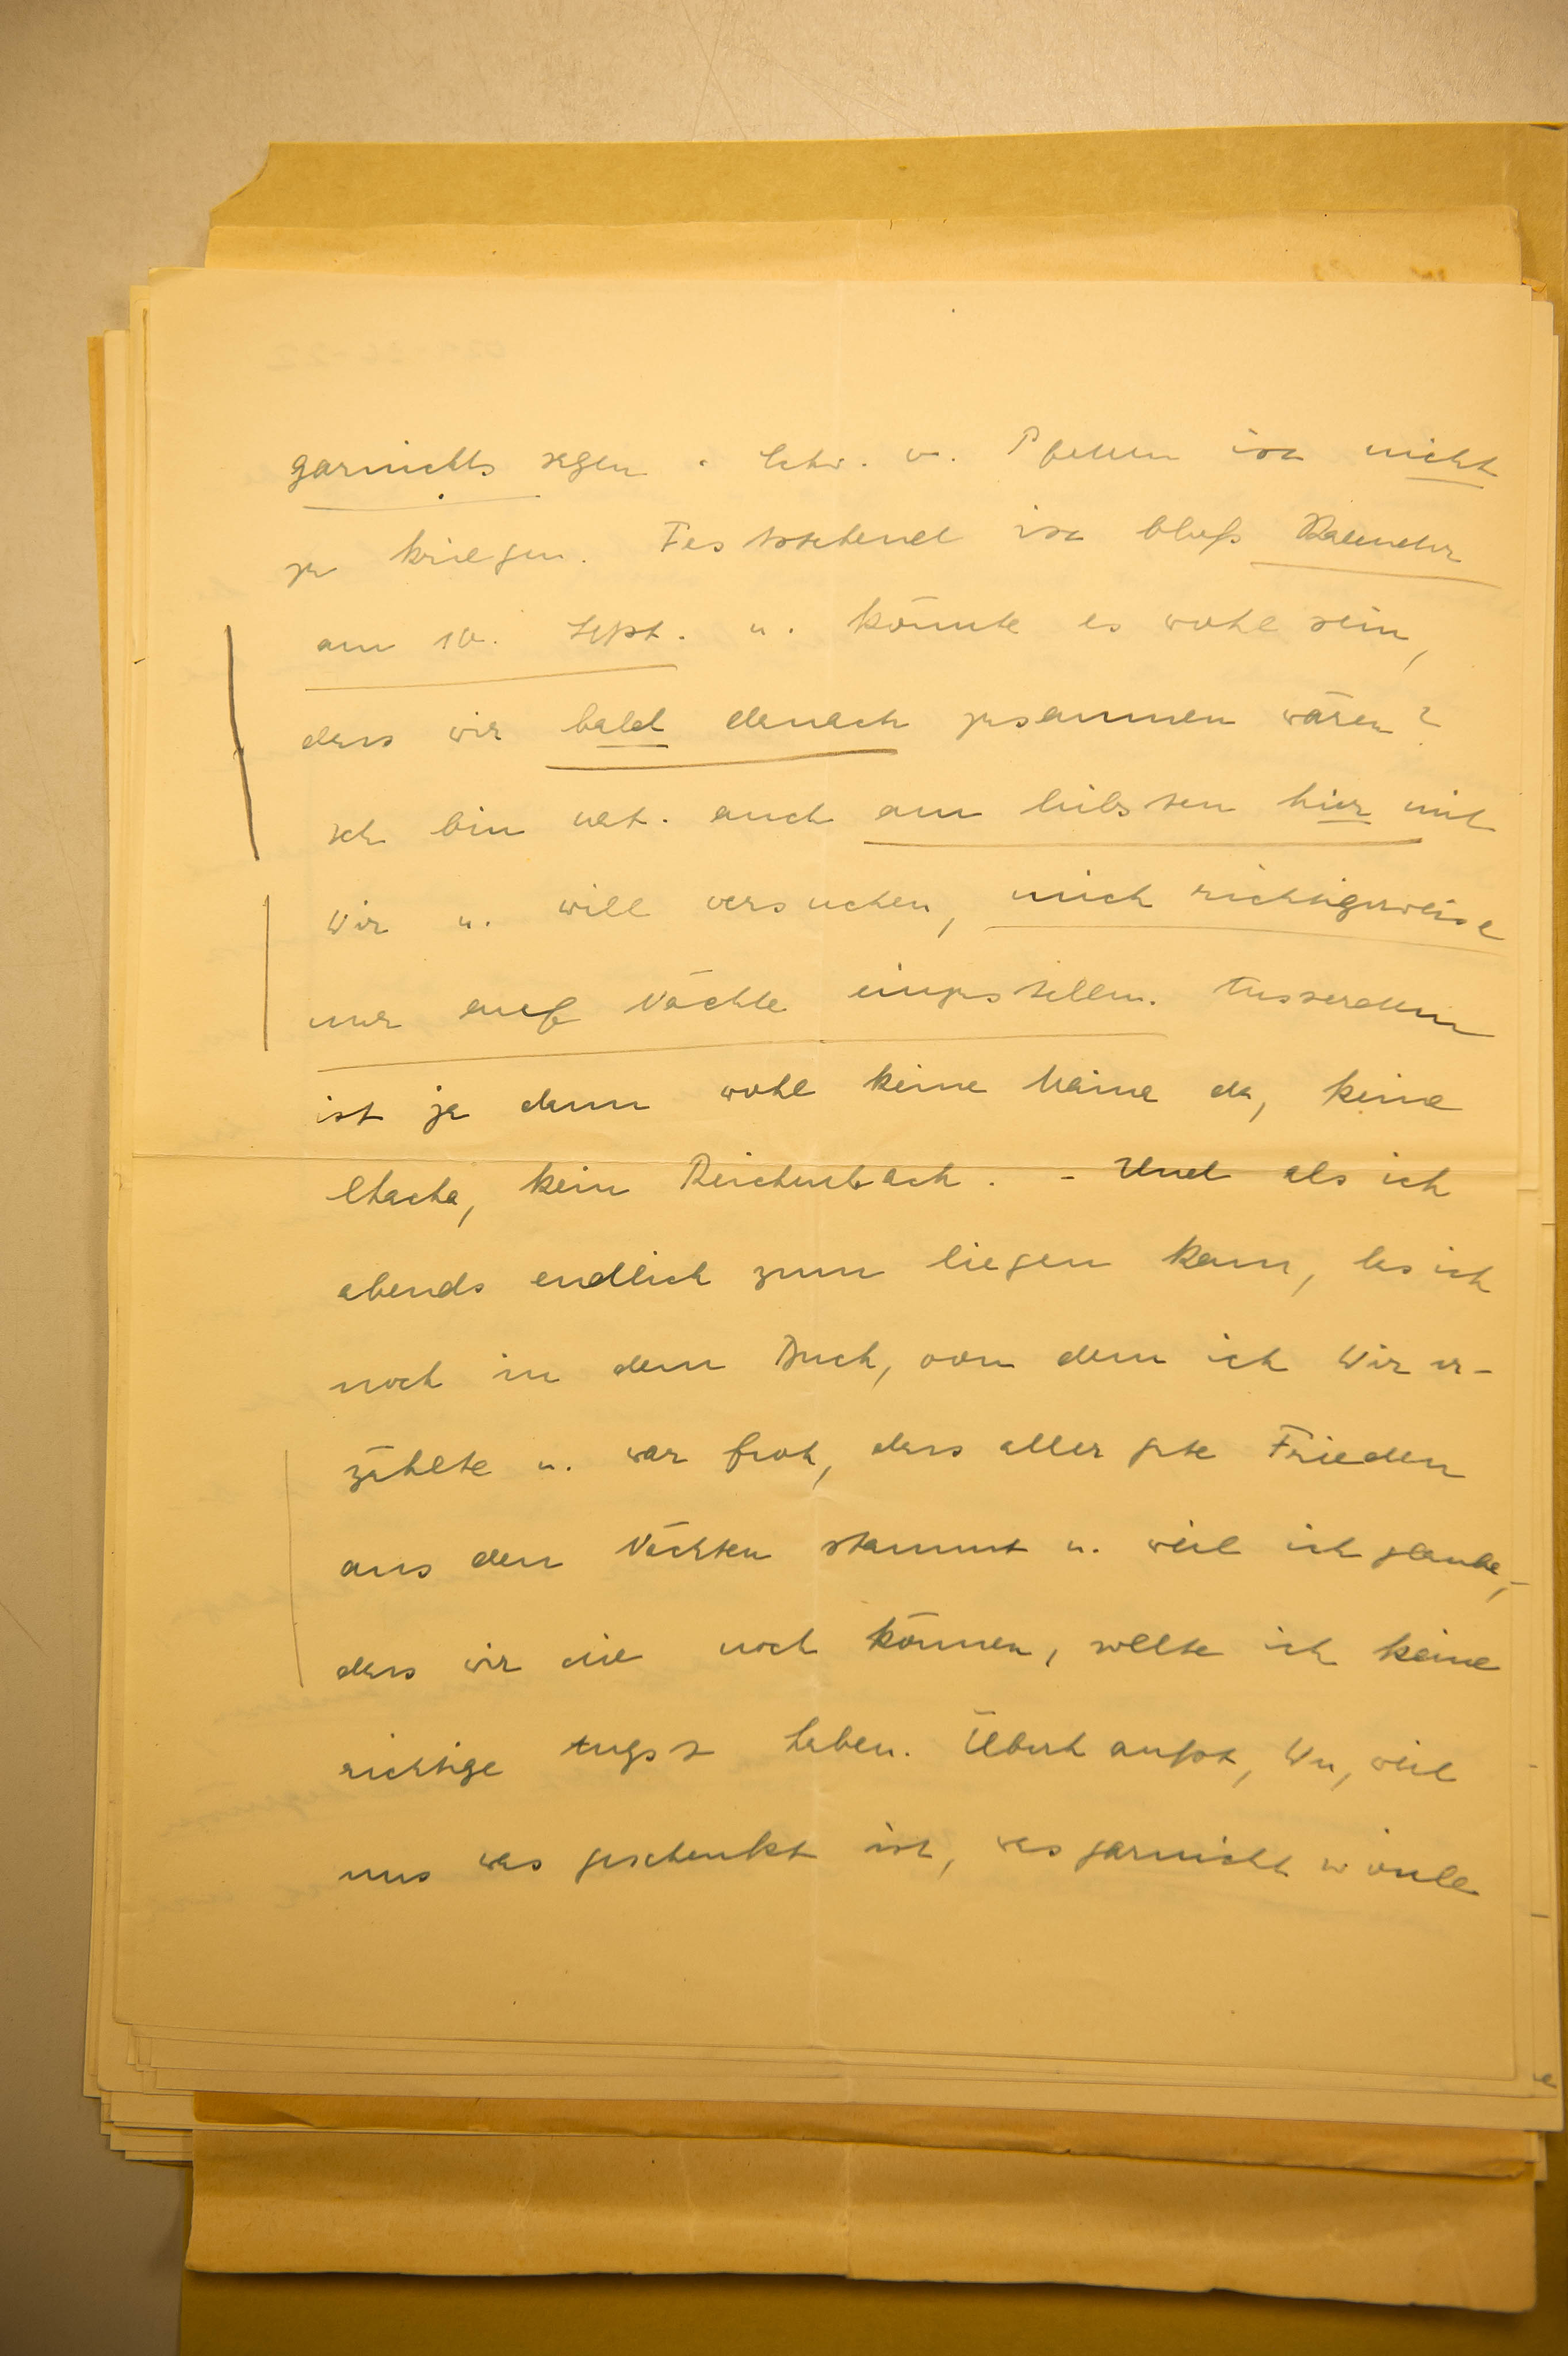 garnichts sagen. Schr. v. ist nicht
zu kriegen. Feststehend ist bloß
am 10. Sept. u. könnte es wohl sein,
dass wir bald danach zusammen wären?
Ich bin nat. auch am liebsten hier mit
Dir u. will versuchen, mich richtigerweise
nur auf Nächte einzustellen. Ausserdem
ist ja dann wohl keine Maina da, keine
Chacha, kein Reichenbach. - Und als ich
abends endlich zum liegen kam, las ich
noch in dem Buch, von dem ich Dir er-
zählte u. war froh, dass aller gute Frieden
aus den Nächten stammt u. weil ich glaube,-
dass wir sie noch können, sollte ich keine
richtige Angst haben. Überhaupt, Du, weil
uns was geschenkt ist, was garnicht